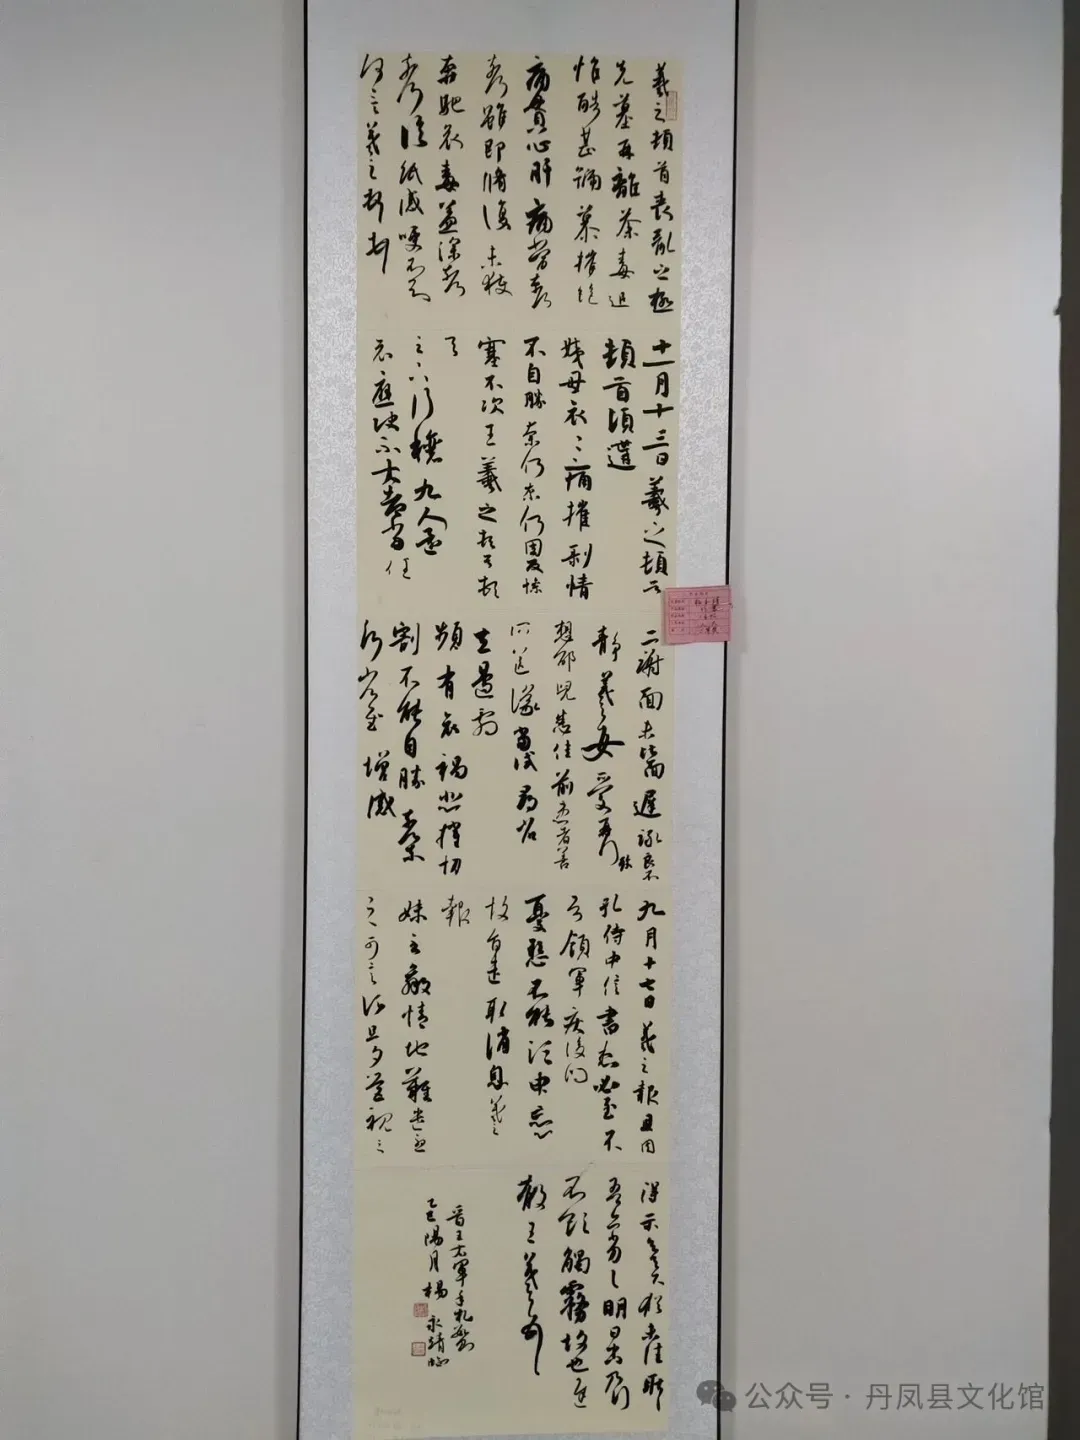 羲之頓首喪亂之極
先墓再離荼毒追
惟酷甚號慕摧絕
痛貫心肝痛當奈何
奈何雖即脩復未獲
奔馳哀毒益深奈何
奈何臨紙感哽不知
何言羲之頓首頓首
十一月十三日羲之頓首
頓首頃遘
姨母哀哀痛摧剝情
不自勝奈何奈何因反慘
塞不次王羲之頓首頓首
之八行穰九人還
示應決不大都當任
二謝面未比面遲詠良不
靜羲之女愛再拜
想邵兒悉佳前患者善
所送議當試尋省
左邊劇
頻有哀禍悲摧切
割不能自勝奈何
奈何省慰增感
九月十七日羲之報且因
孔侍中信書想必至不
知領軍疾後問
憂懸不能須臾忘
故旨遣取消息羲之
報
妹至羸情地難遣憂
之可言須旦夕營視之
得示知足下猶未佳耿
吾亦劣劣明日出乃行
不欲觸霧故也遲
散王羲之頓首
晉王右軍手札數則
乙巳陽月楊永靖臨
公众号·丹凤县文化馆